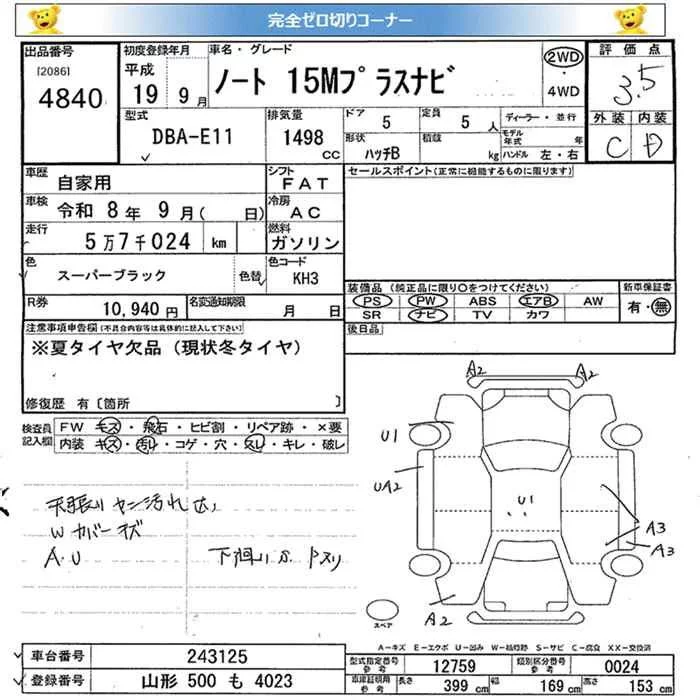 完全ゼロ切りコーナー
出品番号 [20861] 4840
初度登録年月 平成 19 9月
車名・グレード ノート 15Mプラスナビ
2WD ・ 4WD
評価点 3.5
外装 C 内装 D
型式 DBA-E11
排気量 1498 CC
ドア 5 定員 5人
形状 ハッチB 積載 kg
ディーラー・並行
モデル年式 年
ハンドル 左・右
車歴 自家用
シフト FAT
車検 令和 8年 9月( 日)
冷房 AC
走行 5万7千024 km
燃料 ガソリン
色 スーパーブラック 色替
色コード KH3
R券 10,940円
名変通知期限 月 日
セールスポイント(正常に機能するものに限ります)
装備品(純正品に限り○をつけてください)
PS PW ABS エアB AW
SR ナビ TV カワ
新車保証書 有・無
後日品
注意事項申告欄(不具合内容等は具体的に記入して下さい)
※夏タイヤ欠品(現状冬タイヤ)
修復歴 有〔箇所 〕
検査員記入欄
FW キズ・飛石・ヒビ割・リペア跡・×要
内装 キズ・汚れ・コゲ・穴・スレ・キレ・破レ
天張り ヤニ汚れ
W カバーキズ
A・U 下廻り
A2 A2
U1
UA2
U1
A3
A3
A2
スペア
A-キズ E-エクボ U-凹み W-補修跡 S-サビ C-腐食 XX-交換済
車台番号 243125
登録番号 山形 500 も 4023
型式指定番号 参考 12759
類別区分番号 参考 0024
車庫証明用 参考 長さ 399 cm 幅 169 cm 高さ 153 cm